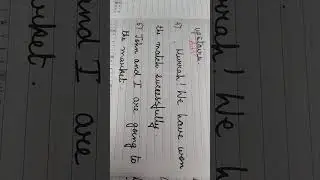 upstairs
4) Hurrah! We have won
the match successfully.
5) John and I are going to
the market.